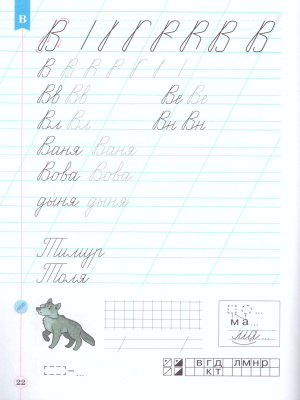 В
В В
В В
Вв Вв Ве Ве
Вл Вл Вн Вн
Ваня Ваня
Вова Вова
дыня дыня
Тимур
Толя
ма...
ма...
– ...
вгд лмнр
кт
22